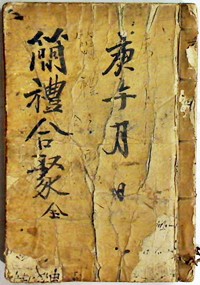 庚午 月 日
簡禮合聚 全